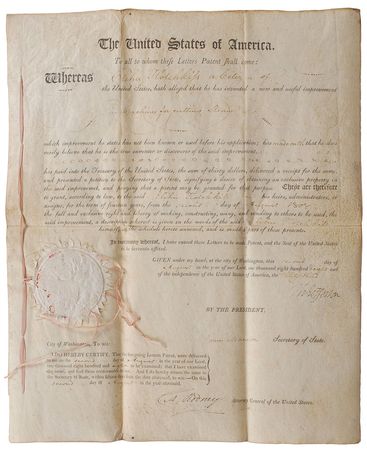 The United States of America.
To all to whom these Letters Patent shall come:
WHEREAS Hotchkiss a Citizen of
the United States, hath alleged that he has invented a new and useful improvement
Machine for cutting
which improvement he states has not been known or used before his application; has made oath, that he does
verily believe that he is the true inventor or discoverer of the said improvement,
has paid into the Treasury of the United States, the sum of thirty dollars, delivered a receipt for the same,
and presented a petition to the Secretary of State, signifying a desire of obtaining an exclusive property in
the said improvement, and praying that a patent may be granted for that purpose: These are therefore
to grant, according to law, to the said Hotchkiss his heirs, administrators, or
assigns, for the term of fourteen years, from the second day of August
the full and exclusive right and liberty of making, constructing, using, and vending to others to be used, the
said improvement, a description whereof is given in the words of the said
himself in the schedule hereto annexed, and is made a part of these presents.
In testimony whereof, I have caused these Letters to be made Patent, and the Seal of the United States
to be hereunto affixed.
GIVEN under my hand, at the city of Washington, this second day of
August in the year of our Lord, one thousand eight hundred eight and
of the independence of the United States of America, the
Th Jefferson
BY THE PRESIDENT,
Madison Secretary of State.
City of Washington, To wit:
I DO HEREBY CERTIFY, That the foregoing Letters Patent, were delivered
to me on the second day of August in the year of our Lord,
one thousand eight hundred and eight to be examined; that I have examined
the same, and find them conformable to law. And I do hereby return the same to
the Secretary of State, within fifteen days from the date aforesaid, to wit:—On this
second day of August in the year aforesaid.
C. A. Rodney Attorney General of the United States.